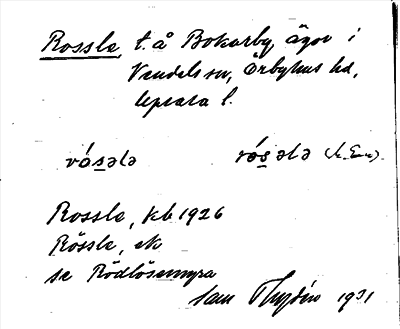 Rossle, t. å Bokarby ägor i
Vendels sn, Örbyhus hd,
Uppsala l.
rósələ rósələ
Rossle, kb 1926
Rössle, ek
se Rödlösemyra
1931